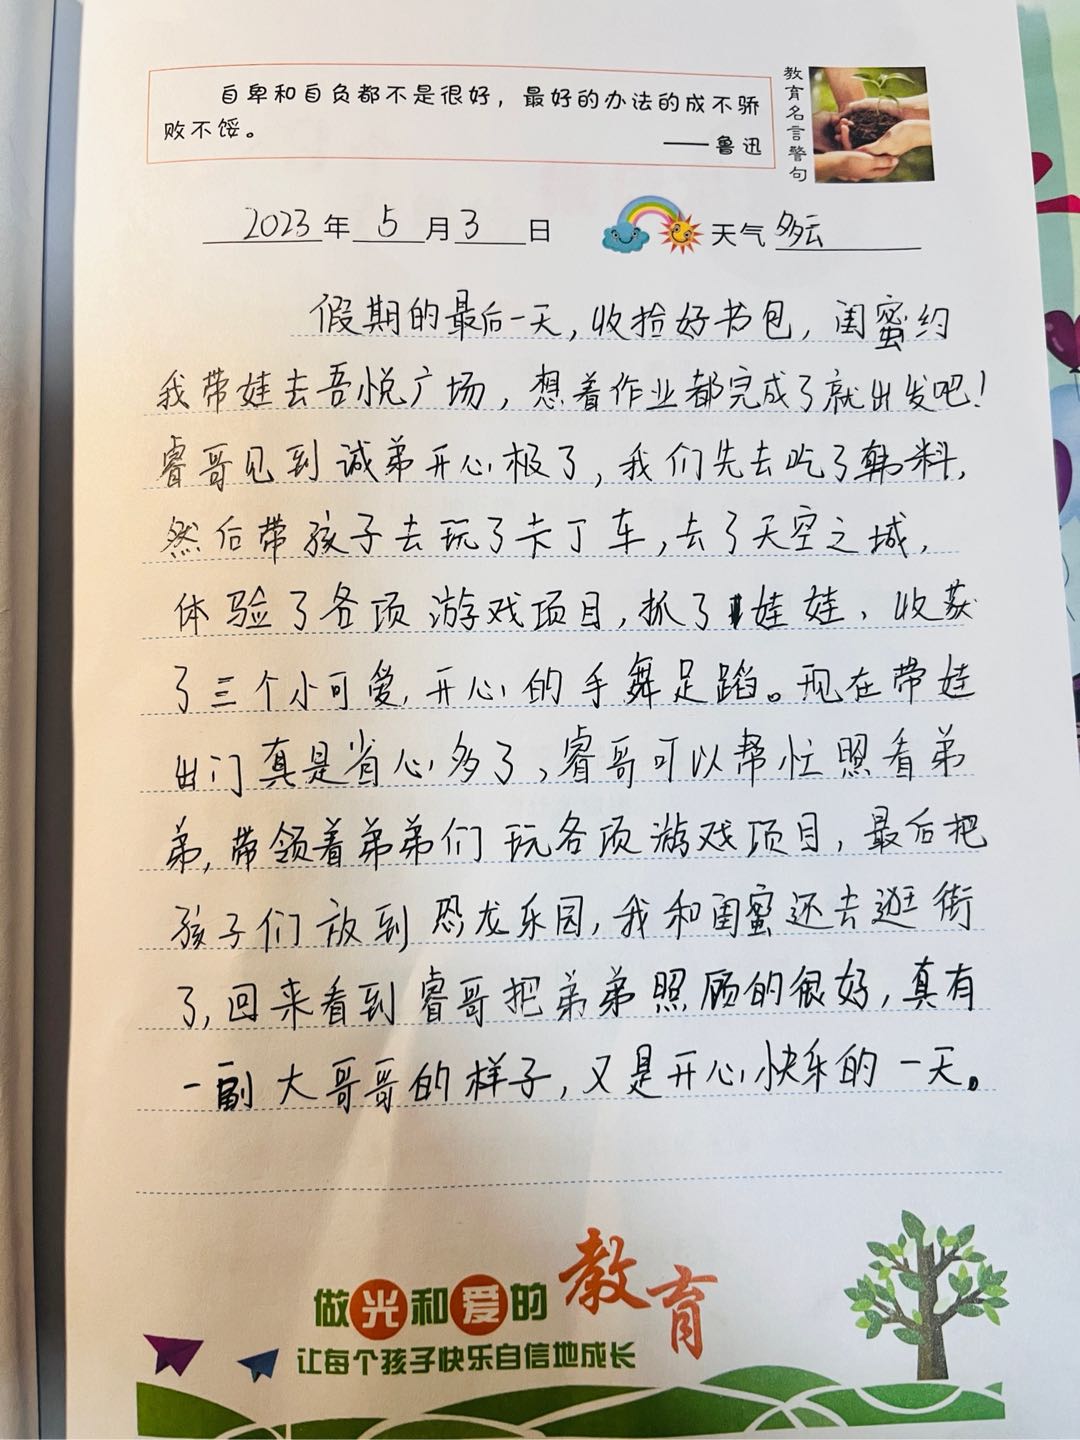 自卑和自负都不是很好，最好的办法的成不骄
败不馁。
——鲁迅
教育名言警句
2023年 5 月 3 日
天气 多云
假期的最后一天，收拾好书包，闺蜜约
我带娃去吾悦广场，想着作业都完成了就出发吧！
睿哥见到诚弟开心极了，我们先去吃了韩料，
然后带孩子去玩了卡丁车，去了天空之城，
体验了各项游戏项目，抓了娃娃，收获
了三个小可爱，开心的手舞足蹈。现在带娃
出门真是省心多了，睿哥可以帮忙照看弟
弟，带领着弟弟们玩各项游戏项目，最后把
孩子们放到恐龙乐园，我和闺蜜还去逛街
了，回来看到睿哥把弟弟照顾的很好，真有
一副大哥哥的样子，又是开心快乐的一天。
做光和爱的教育
让每个孩子快乐自信地成长